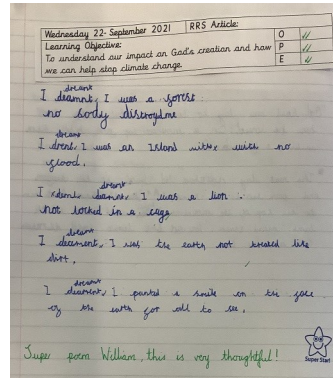 Wednesday 22nd September 2021 RRS Article:
Learning Objective:
To understand our impact on God's creation and how
we can help stop climate change.
O
P
E
dreamt
I deamnt, I was a forest
no body distroydme
dreamt
I drent, I was an Island with no
flood.
dreamt
I I was a lion.
not locked in a cage
dreamt
I I was the earth not treated like
dirt.
dreamt
I I painted a smile on the face
of the earth for all to see.
Super Star!
Super poem William, this is very thoughtful!